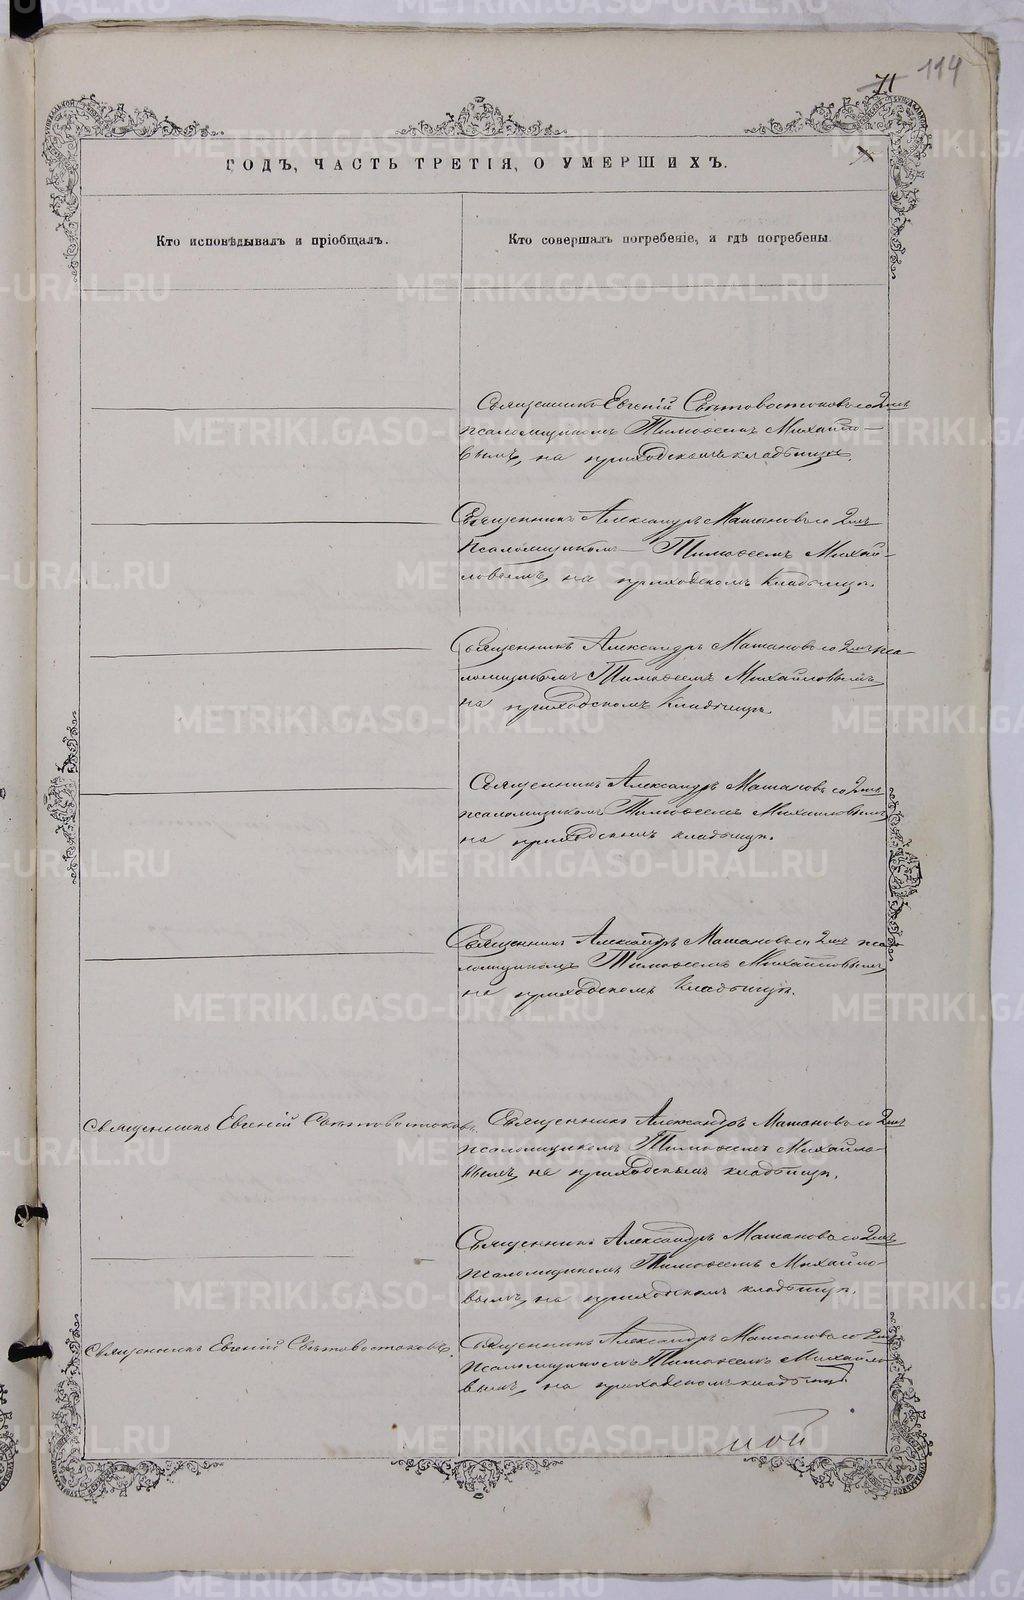 71 114
ГОДЪ, ЧАСТЬ ТРЕТІЯ, О УМЕРШИХЪ.
Кто исповѣдывалъ и пріобщалъ.
Кто совершалъ погребеніе, и гдѣ погребены.
Священникъ Евгеній Свѣтовостоковъ со 2мъ
псаломщикомъ Тимоѳеемъ Михайло-
вымъ, на приходскомъ кладбищѣ.
Священникъ Александръ Матановъ со 2мъ
Псаломщикомъ Тимоѳеемъ Михай-
ловымъ, на приходскомъ кладбищѣ.
Священникъ Александръ Матановъ со 2мъ пса-
ломщикомъ Тимоѳеемъ Михайловымъ,
на приходскомъ кладбищѣ.
Священникъ Александръ Матановъ со 2мъ
псаломщикомъ Тимоѳеемъ Михайловымъ
на приходскомъ кладбищѣ.
Священникъ Александръ Матановъ со 2мъ пса-
ломщикомъ Тимоѳеемъ Михайловымъ,
на приходскомъ кладбищѣ.
Священникъ Евгеній Свѣтовостоковъ.
Священникъ Александръ Матановъ со 2мъ
псаломщикомъ Тимоѳеемъ Михайло-
вымъ, на приходскомъ кладбищѣ.
Священникъ Александръ Матановъ со 2мъ
псаломщикомъ Тимоѳеемъ Михайло-
вымъ, на приходскомъ кладбищѣ.
Священникъ Евгеній Свѣтовостоковъ.
Священникъ Александръ Матановъ со 2мъ
Псаломщикомъ Тимоѳеемъ Михайло-
вымъ, на приходскомъ кладбищѣ.
METRIKI.GASO-URAL.RU